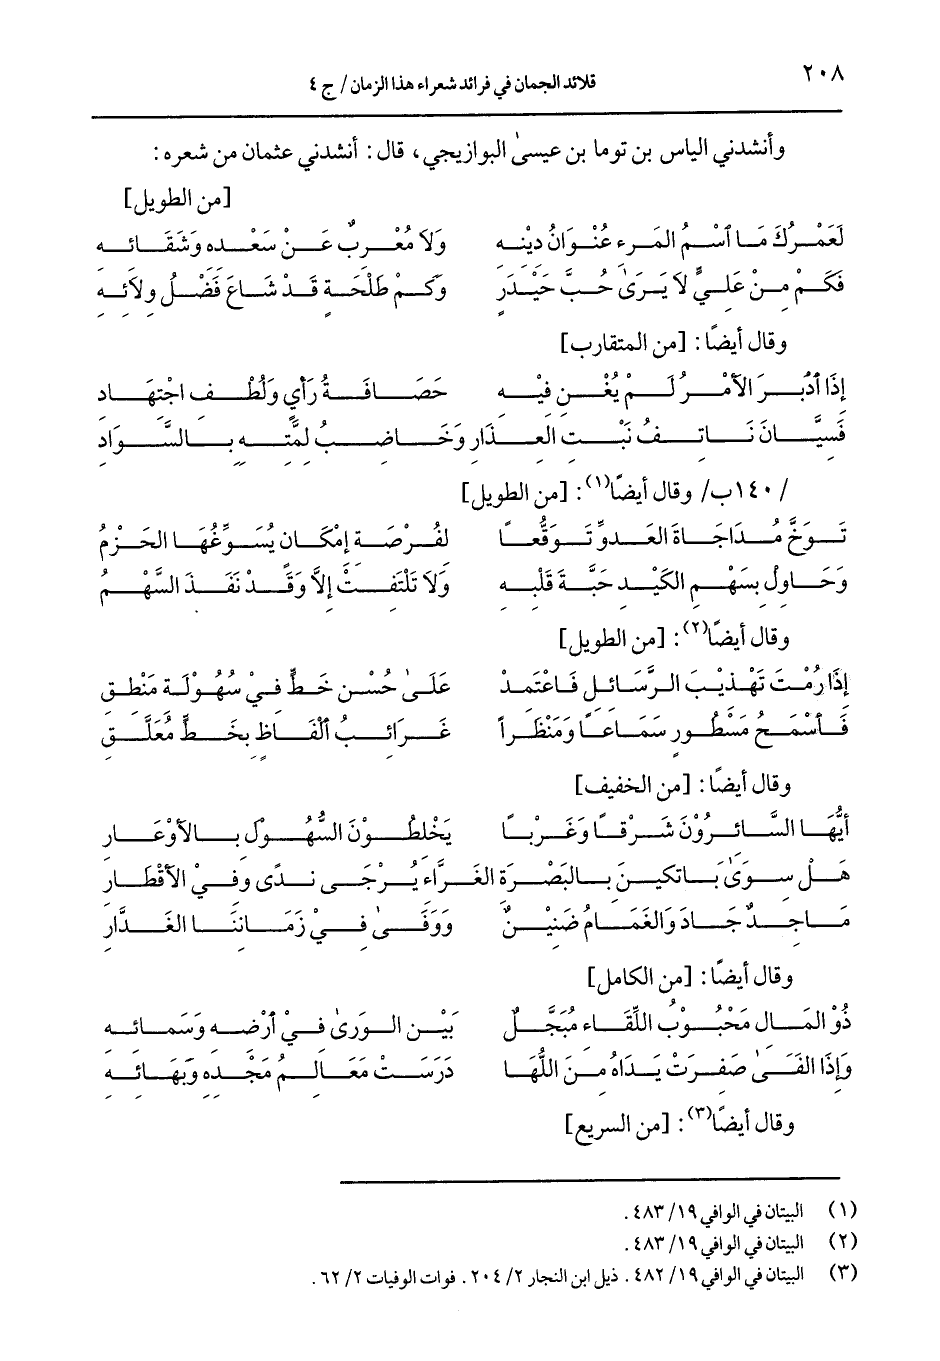 ٢٠٨
قلائد الجمان في فرائد شعراء هذا الزمان / ج ٤
وأنشدني الياس بن توما بن عيسىٰ البوازيجي، قال: أنشدني عثمان من شعره:
[من الطويل]
لَعَمْرُكَ مَا اُسْمُ المَرءِ عُنْوَانُ دِيْنِهِ وَلاَ مُعْرِبٌ عَنْ سَعْدِهِ وَشَقَائِهِ
فَكَمْ مِنْ عَلِيٍّ لاَ يَرَىٰ حُبَّ حَيْدَرٍ وَكَمْ طَلْحَةٍ قَدْ شَاعَ فَضْلُ وِلاَئِهِ
وقال أيضًا: [من المتقارب]
إِذَا أَدْبَرَ الأَمْرُ لَمْ يُغْنِ فِيْهِ حَصَافَةُ رَأيٍ وَلُطْفِ اجْتِهَادِ
فَسِيَّانَ نَاتِفُ نَبْتِ العِذَارِ وَخَاضِبُ لِمَّتِهِ بِالسَّوَادِ
/١٤٠ب/ وقال أيضًا(١): [من الطويل]
تَوَخَّ مُدَاجَاةَ العَدوِّ تَوَقُّعًا لِفُرْصَةِ إِمْكَانٍ يُسَوِّغُهَا الحَزْمُ
وَحَاوِلْ بِسَهْمِ الكَيْدِ حَبَّةَ قَلْبِهِ وَلاَ تَلْتَفِتْ إِلاَّ وَقَدْ نَفَذَ السَّهْمُ
وقال أيضًا(٢): [من الطويل]
إِذَا رُمْتَ تَهْذِيْبَ الرَّسَائِلِ فَاعْتَمِدْ عَلَىٰ حُسْنِ خَطٍّ فِيْ سُهُوْلَةِ مَنْطِقِ
فَأَسْمَجُ مَسْطُورٍ سَمَاعًا وَمَنْظَرًا غَرَائِبُ أَلْفَاظٍ بِخَطٍّ مُعَلَّقِ
وقال أيضًا: [من الخفيف]
أَيُّهَا السَّائِرُوْنَ شَرْقًا وَغَرْبًا يَخْلِطُوْنَ السُّهُوْلَ بِالأَوْعَارِ
هَلْ سِوَىٰ بَاتكينَ بِالبَصْرَةِ الغَرَّاءِ يُرْجَى نَدًى وَفِيْ الأَقْطَارِ
مَاجِدٌ جَادَ وَالغَمَامُ ضَنِيْنٌ وَوَفَىٰ فِيْ زَمَانِنَا الغَدَّارِ
وقال أيضًا: [من الكامل]
ذُوْ المَالِ مَحْبُوْبُ اللِّقَاءِ مُبَجَّلٌ بَيْنَ الوَرَىٰ فِيْ أَرْضِهِ وَسَمَائِهِ
وَإِذَا الفَتَىٰ صَفِرَتْ يَدَاهُ مِنَ اللُّهَا دَرَسَتْ مَعَالِمُ مَجْدِهِ وَبَهَائِهِ
وقال أيضًا(٣): [من السريع]
(١) البيتان في الوافي ١٩/ ٤٨٣.
(٢) البيتان في الوافي ١٩/ ٤٨٣.
(٣) البيتان في الوافي ١٩/ ٤٨٢. ذيل ابن النجار ٢/ ٢٠٤. فوات الوفيات ٢/ ٦٢.